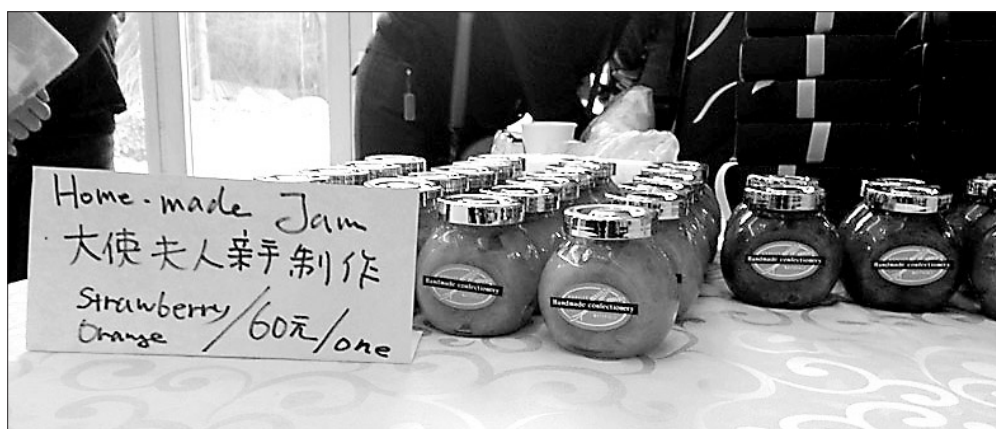 Home-made Jam
大使夫人亲手制作
Strawberry
Orange
/60元/one
Handmade confectionery
Handmade confectionery
Handmade confectionery
Handmade confectionery